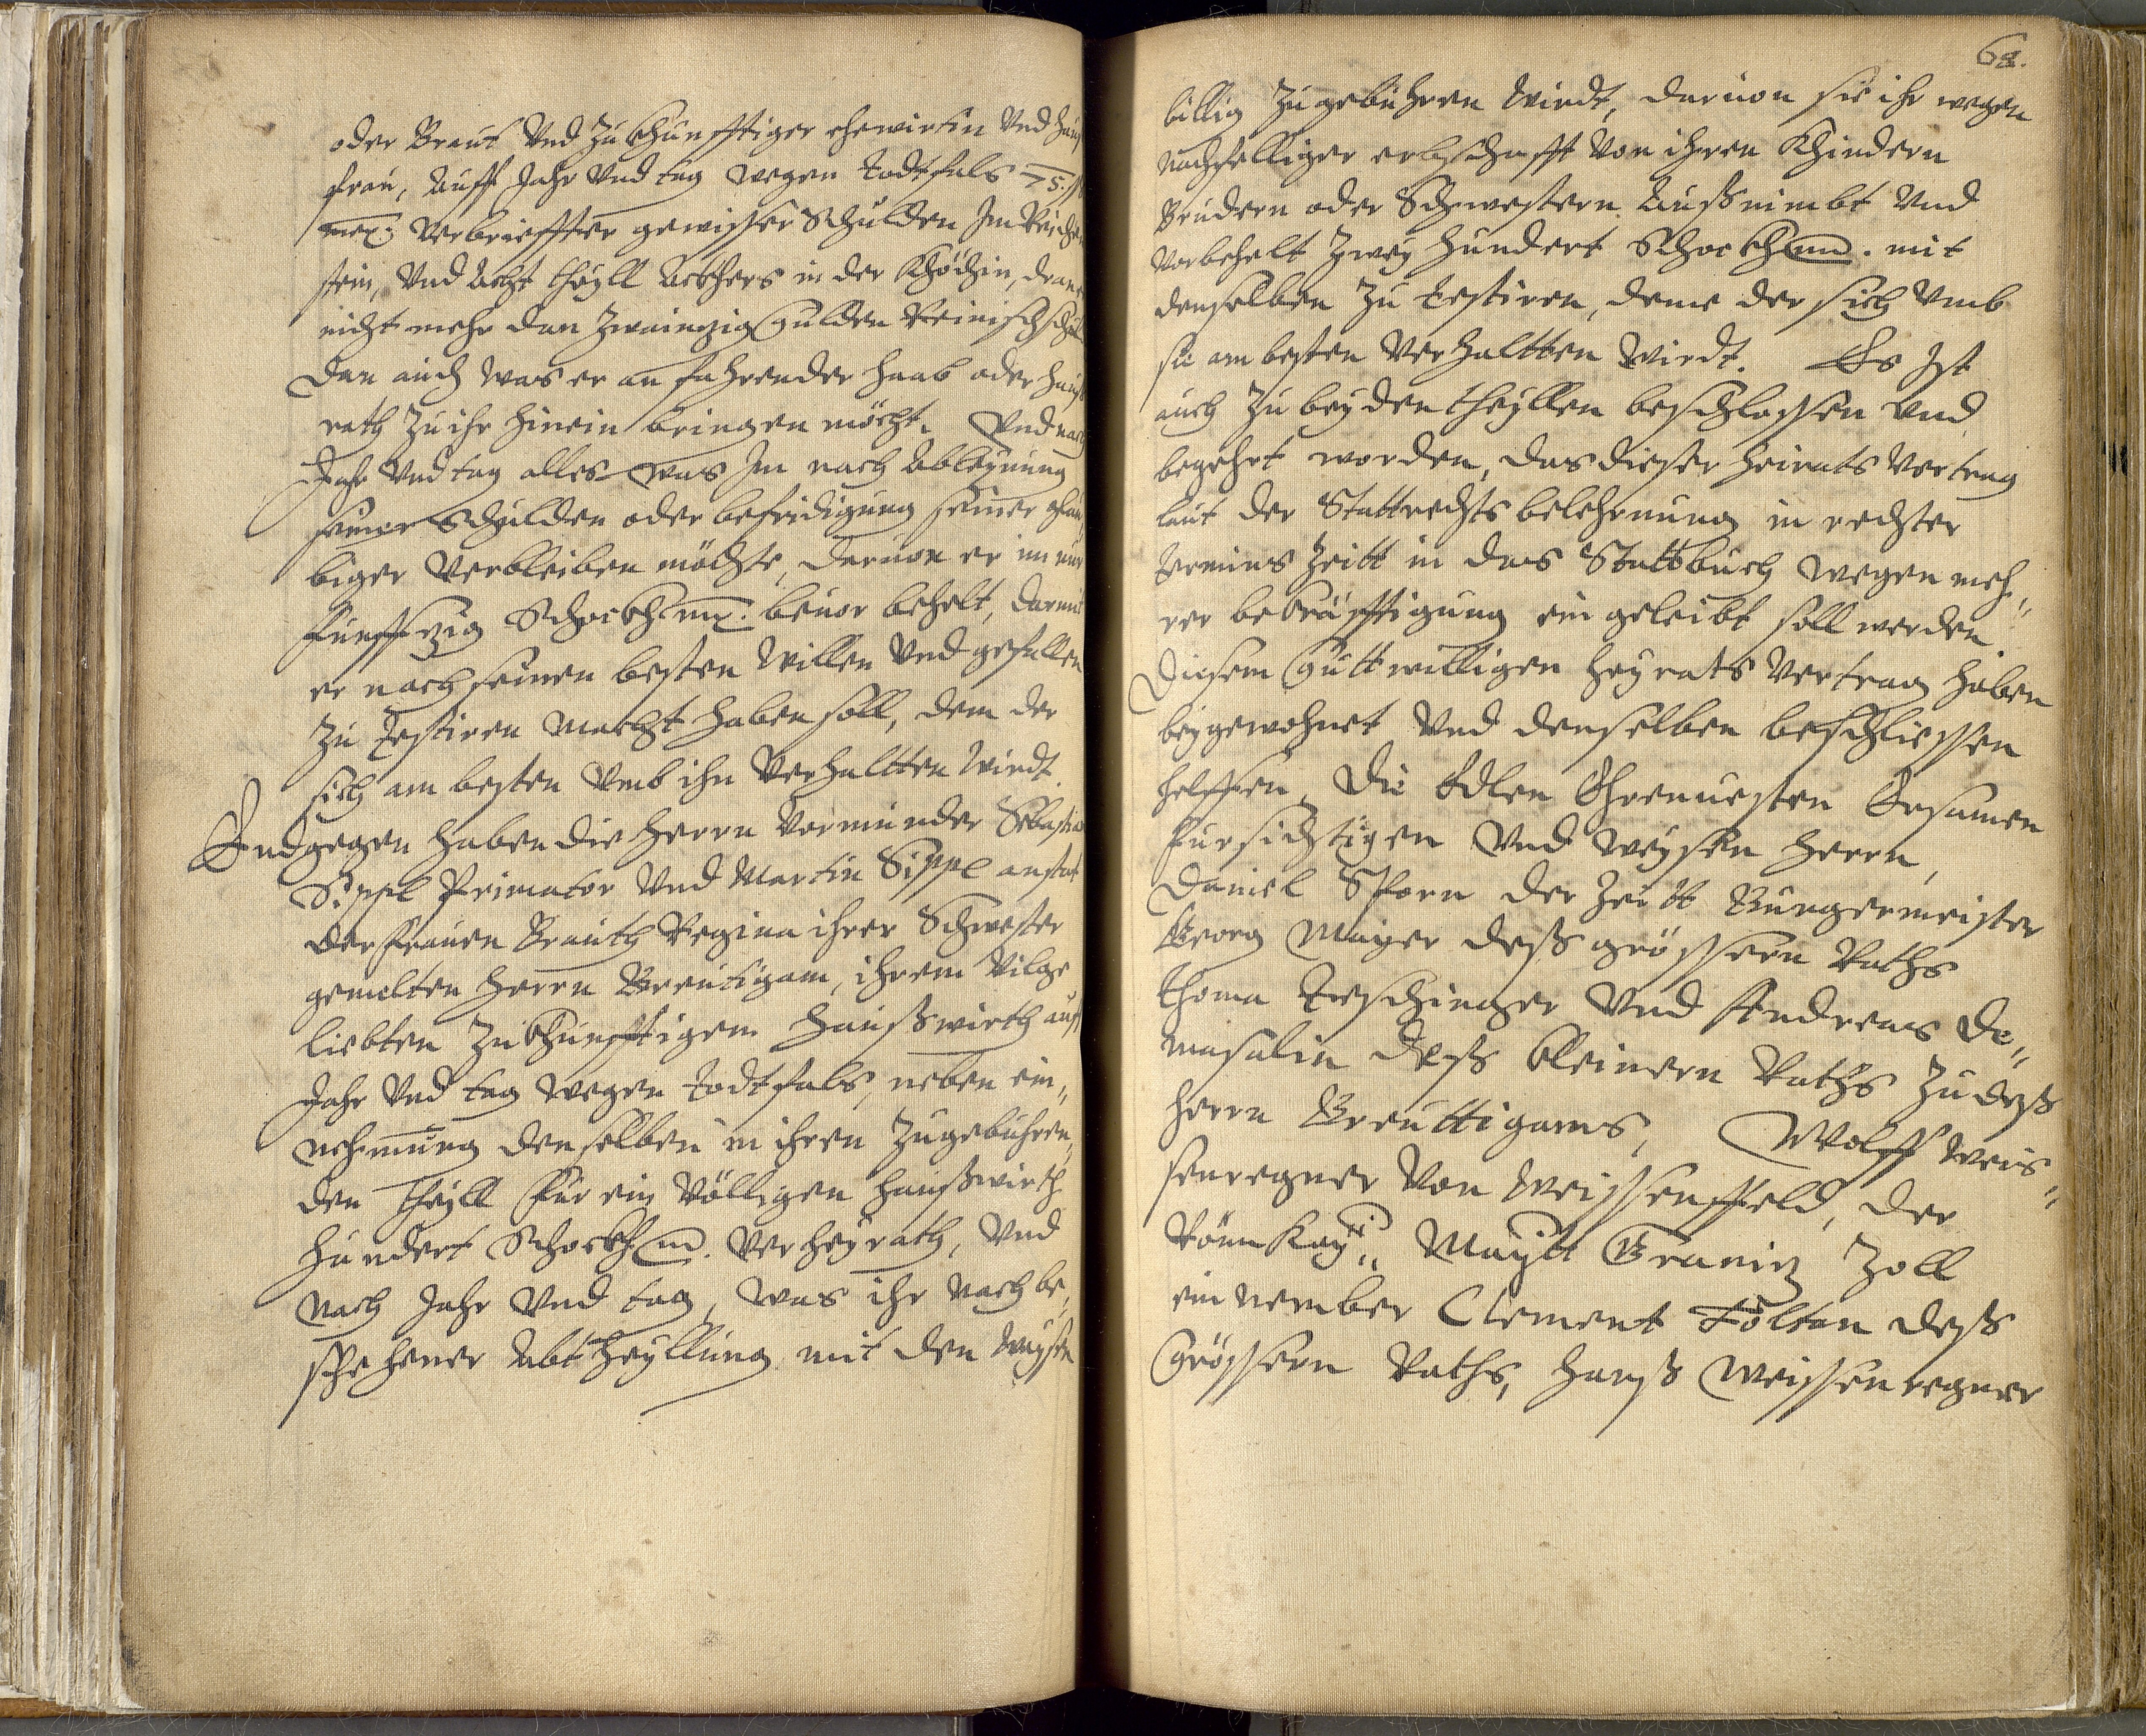 oder Braut Vnd Zu Khunfftiger ehewirtin Vnd Hauß
frau, Auff Jahr Vnd tag wegen todtfals 75 ß
mex: Verbriefter gewisser Schulden Im Reichen
stein, Vnd Acht theyll Ackhers in der Khöchin,
nicht mehr dan Zwainzig Gulden Reinisch
Dan auch was er an fahrender haab oder Hauß
rath Zu ihr hinein bringen möcht. Vnd nach
Jahr Vnd tag alles was Im nach Ablegung
seiner Schulden oder befridigung seiner glau„
biger Verbleiben möchte, daruon er im nur
funffzig Schockh mex. beuor behelt, darmit
er nach seinen besten Willen Vnd gefallen
Zu Testiren Macht haben soll, dem der
sich am besten Vmb ihn Verhaltten Wirdt.
Endgegen haben die Herrn Vormunder Sebastian
Sippl Primator Vnd Martin Sippl anstat
der frauen Brauth Regina ihrer Schwester
gemelten Herrn Breutigam, ihrem Vilge
liebten Zu Khunfftigem Haußwirth auff
Jahr Vnd tag wegen todtfals, neben ein„
nehmung denselben in ihren Zugebühren„
den Theyll für ein Völligen Haußwirth
Hundert Schockh m. Verheyrath, Vnd
nach Jahr Vnd tag, was ihr nach be„
schehener Abtheyllung mit den Waysen
68.
billig Zugebühren Wirdt, daruon sie ihr wegen
nachfelliger erbschafft Von ihren Khindern
Brudern oder Schwestern Außnimbt Vnd
Vorbehelt Zwey Hundert Schockh m. mit
denselben Zu testiren, deme der sich Vmb
sie am besten Verhaltten Wirdt. Es Ist
auch Zu beyden theyllen beschlossen Vnd
begehrt worden, das dieser Heirats Vertrag
laut der Stattrechts belehrnung in rechter
termins Zeitt in das Stattbuch wegen meh„
rer bekräfftigung ein geleibt soll werden.
Diesem Guttwilligen Heyrats Vertrag haben
beygewohnet Vnd denselben beschliessen
helffen, Die Edlen Ehrenuesten Ersamen
fursichtigen Vnd Weysen Herrn,
Daniel Sporn der Zeitt Burgermeister
Georg Mayer deß grössern Raths
Thoma Teschinger Vnd Andreas De„
masalin deß kleinern Raths Zu deß
Herrn Breuttigams, Wolff Weis„
senregner Von Weissenffeld, der
Röm Kay:„ Maytt Graniz Zoll
einnember Clement Foltan deß
Grössern Raths, Hanß Weissenregner